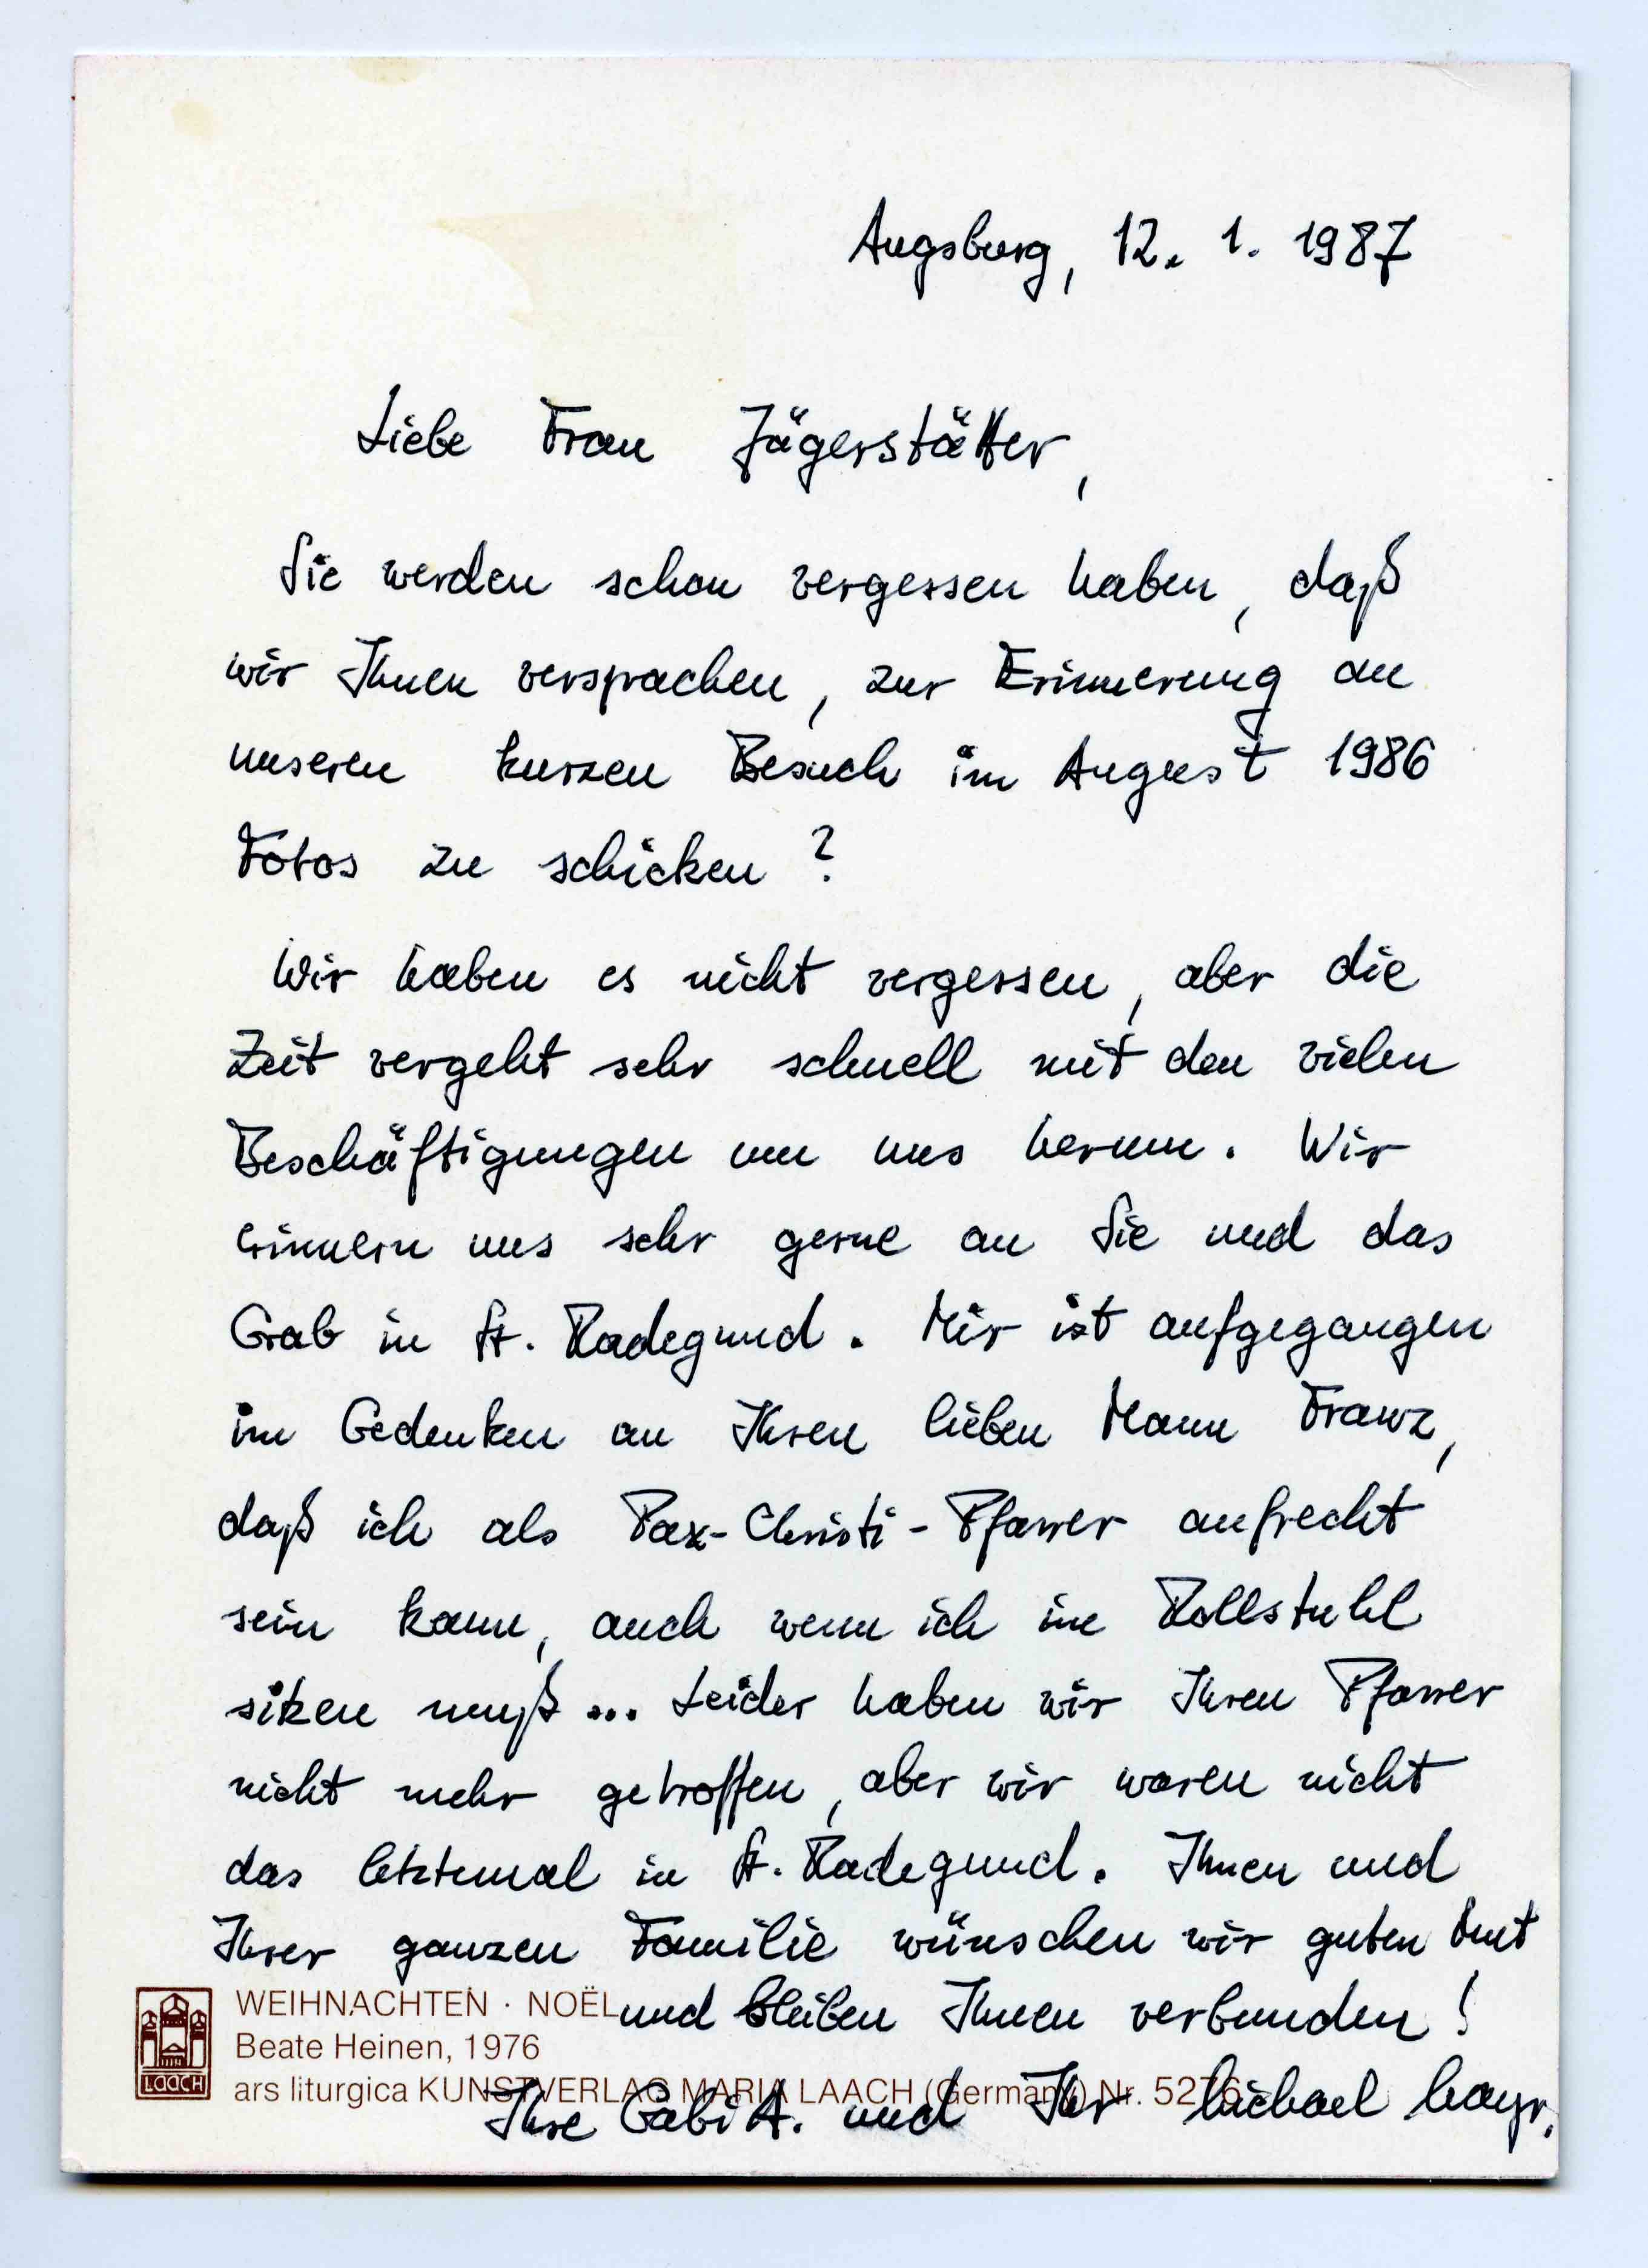 Augsburg, 12. 1. 1987
Liebe Frau Jägerstätter,
Sie werden schon vergessen haben, daß
wir Ihnen versprachen, zur Erinnerung an
unseren kurzen Besuch im August 1986
Fotos zu schicken?
Wir haben es nicht vergessen, aber die
Zeit vergeht sehr schnell mit den vielen
Beschäftigungen um uns herum. Wir
erinnern uns sehr gerne an Sie und das
Grab in St. Radegund. Mir ist aufgegangen
im Gedenken an Ihren lieben Mann Franz,
daß ich als Pax-Christi-Pfarrer aufrecht
sein kann, auch wenn ich im Rollstuhl
sitzen muß... Leider haben wir Ihren Pfarrer
nicht mehr getroffen, aber wir waren nicht
das letztemal in St. Radegund. Ihnen und
Ihrer ganzen Familie wünschen wir guten Mut
und bleiben Ihnen verbunden!
Ihre Gabi A. und Ihr Michael Mayr.
WEIHNACHTEN · NOËL
Beate Heinen, 1976
ars liturgica KUNSTVERLAG MARIA LAACH (Germany) Nr. 5276
LAACH